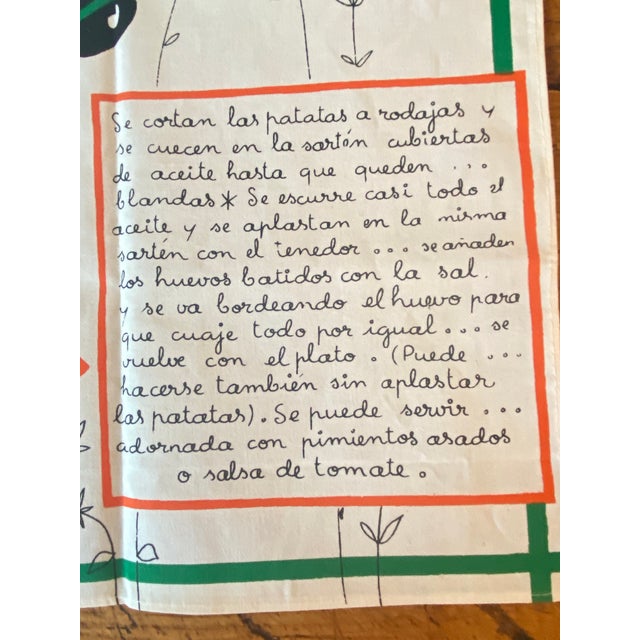 Se cortan las patatas a rodajas y
se cuecen en la sartón cubiertas
de aceite hasta que queden ...
blandas * Se escurre casi todo el
aceite y se aplastan en la misma
sartén con el tenedor ... se añaden
los huevos batidos con la sal.
y se va bordeando el huevo para
que cuaje todo por igual ... se
vuelve con el plato. (Puede ...
hacerse también sin aplastar
las patatas). Se puede servir ...
adornada con pimientos asados
o salsa de tomate.